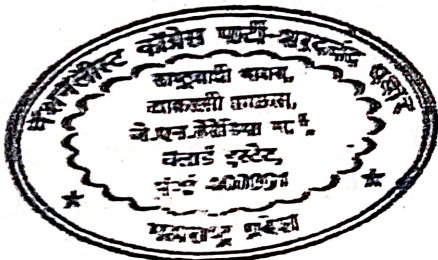 नॅशनलीस्ट काँग्रेस पार्टी-शरदचंद्र पवार
राष्ट्रवादी भवन,
ठाकरसी हाऊस,
जे.एन.हेरेडिया मार्ग,
बलार्ड इस्टेट,
मुंबई
महाराष्ट्र प्रदेश